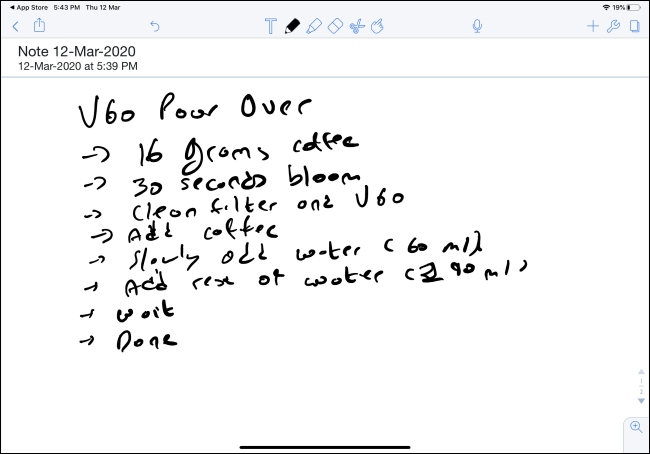 App Store 5:43 PM Thu 12 Mar 19%
Note 12-Mar-2020
12-Mar-2020 at 5:39 PM
V60 Pour Over
→ 16 grams coffee
→ 30 seconds bloom
→ Clean filter and V60
→ Add coffee
→ Slowly add water (60 ml)
→ Add rest of water (190 ml)
→ wait
→ Done
1
2